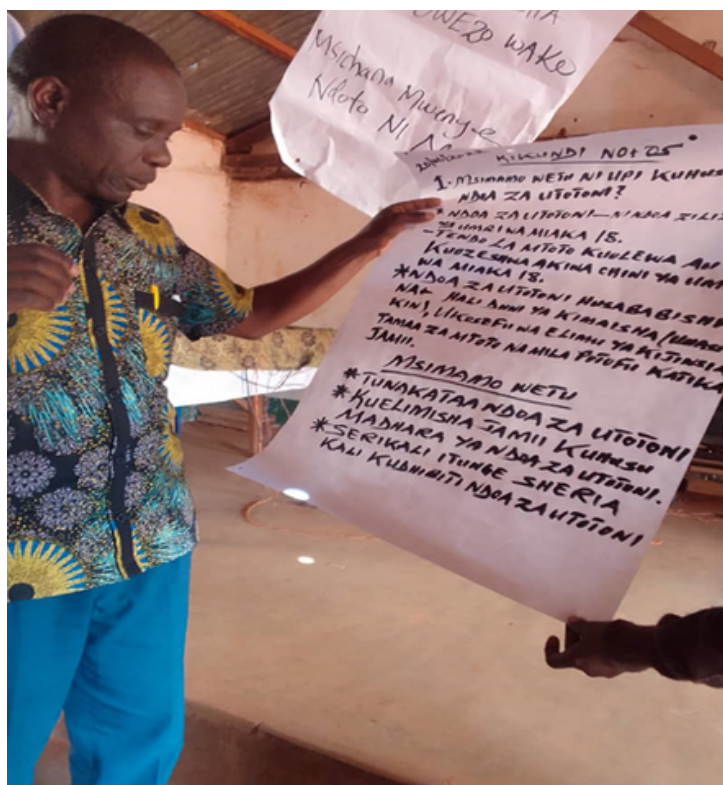 UWEZO WAKO
Msichana Mwenye
Ndoto Ni
KIKUNDI NO+ 05
1. MSIMAMO WETU NI UPI KUHUS
NDOA ZA UTOTONI?
* NDOA ZA UTOTONI - NI NDOA ZILIZ
YA UMRI WA MIAKA 18.
- TENDO LA MTOTO KUOLEWA AU
KUOZESHWA AKIWA CHINI YA UM
WA MIAKA 18.
* NDOA ZA UTOTONI HUSABABISHW
NA+ HALI DUNI YA KIMAISHA (UMAS
KINI), UKOSEFU WA ELIMU YA KIJINSIA
TAMAA ZA MTOTO NA MILA POTOFU KATIKA
JAMII.
MSIMAMO WETU
* TUNAKATAA NDOA ZA UTOTONI
* KUELIMISHA JAMII KUHUSU
MADHARA YA NDOA ZA UTOTONI.
* SERIKALI ITUNGE SHERIA
KALI KUDHIBITI NDOA ZA UTOTONI